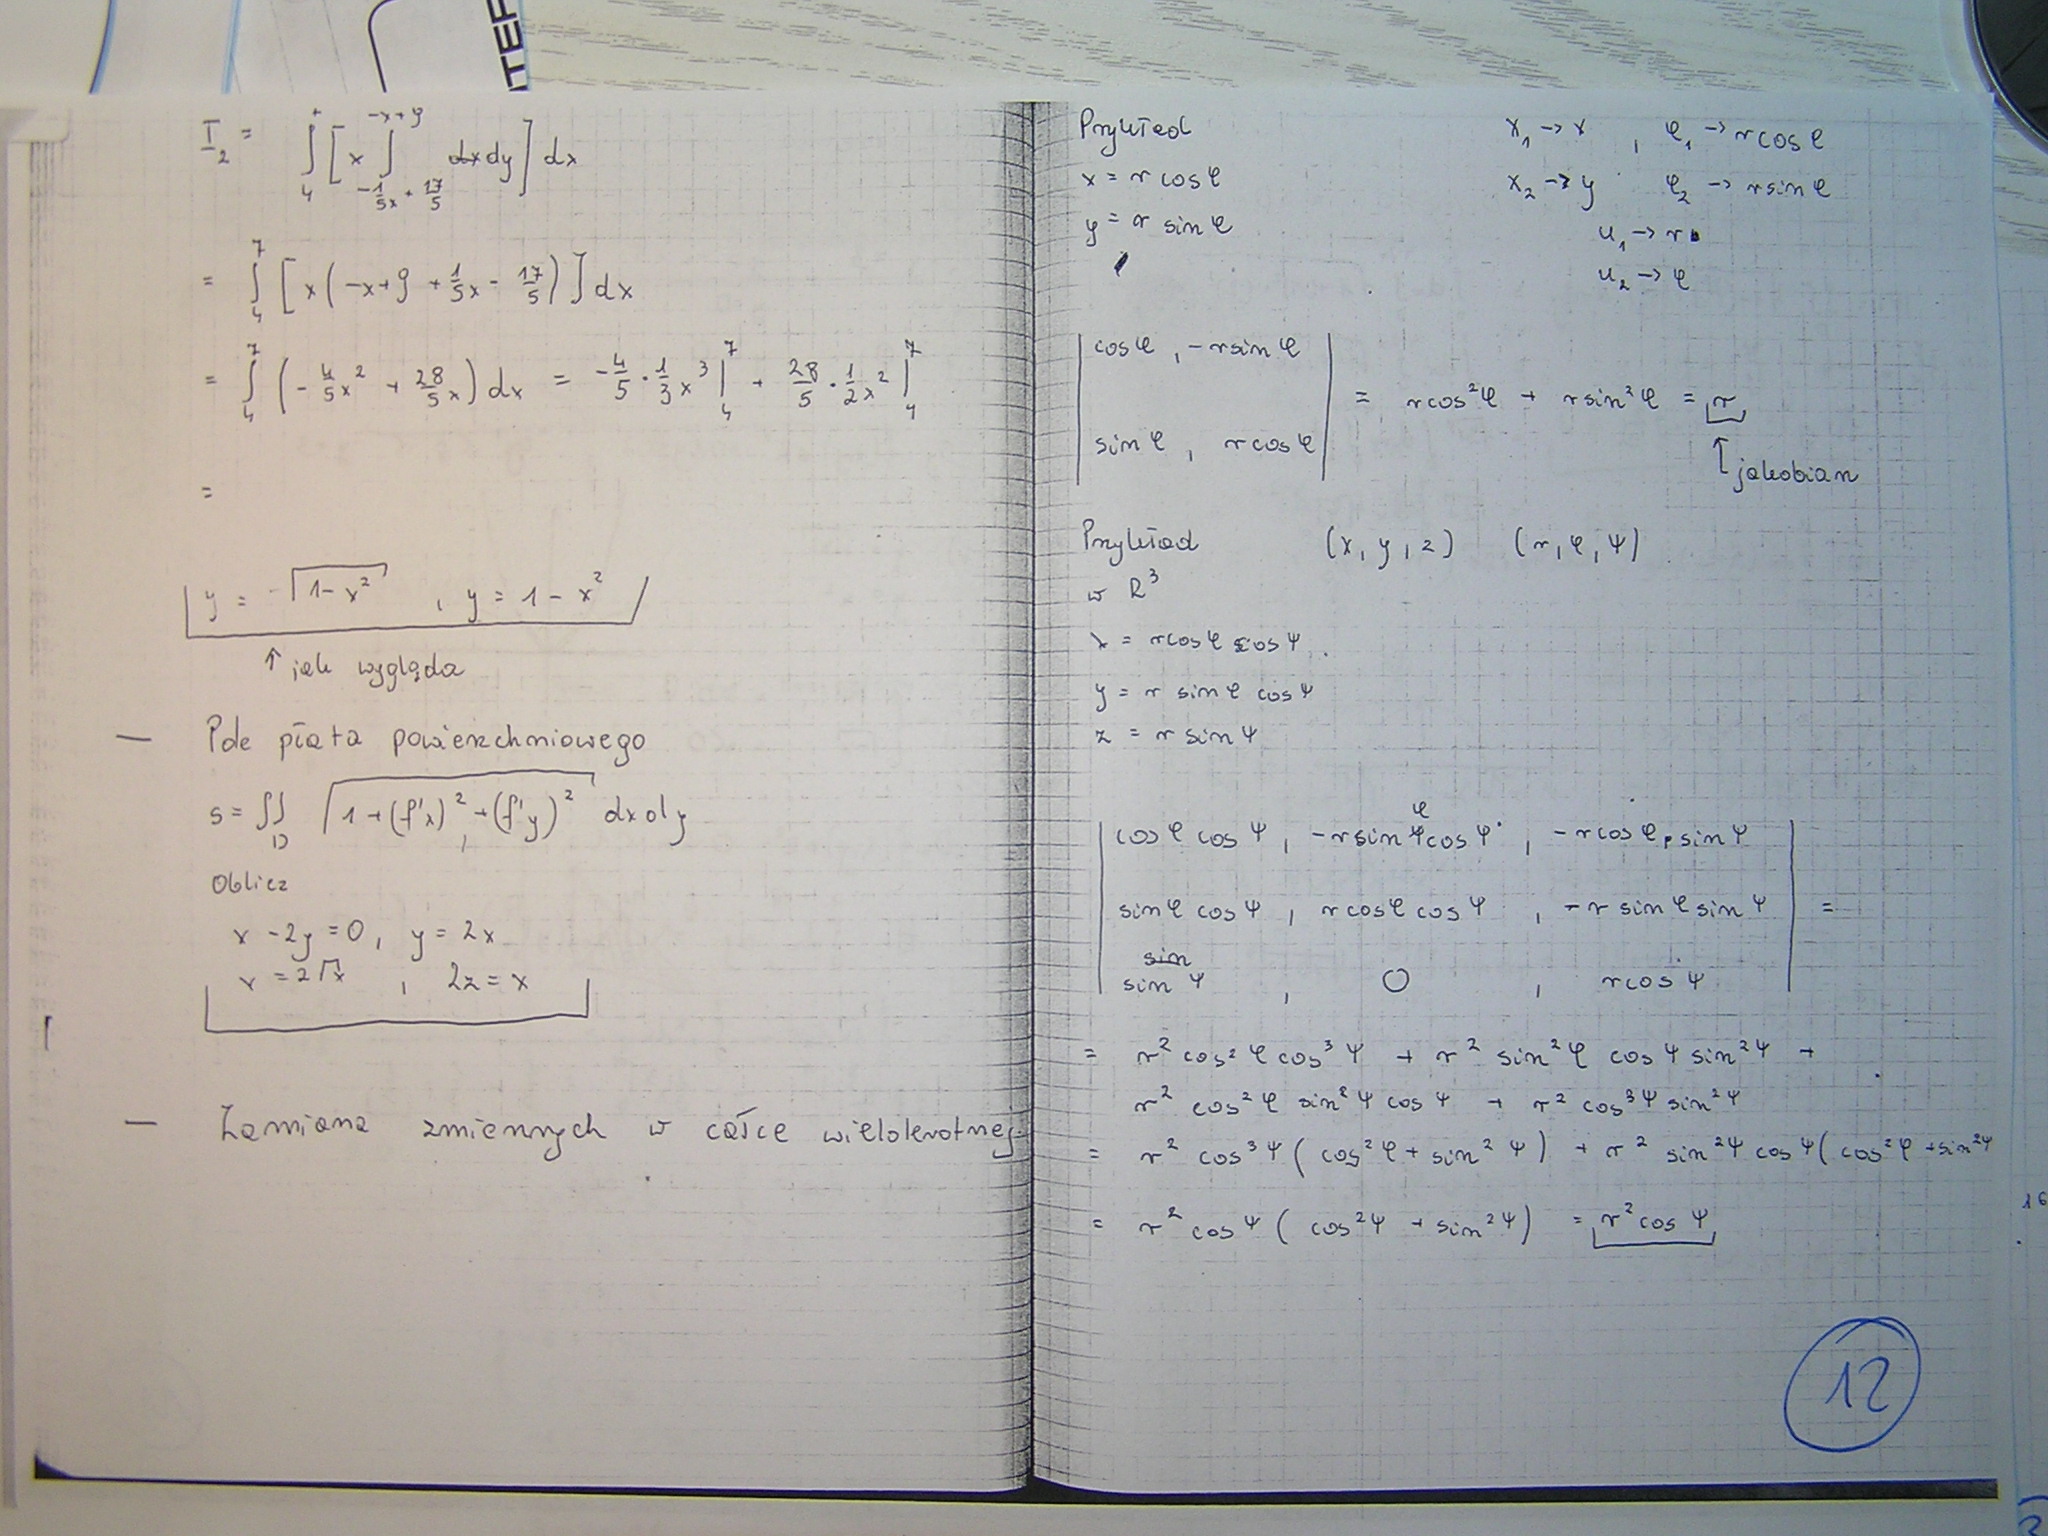 ITER
I₂ = ∫₄⁷ [ x ∫_{-1/5x + 17/5}^{-x+9} dy ] dx
= ∫₄⁷ [ x ( -x+9 + 1/5x - 17/5 ) ] dx
= ∫₄⁷ ( - 4/5x² + 28/5x ) dx = - 4/5 · 1/3 x³ |₄⁷ + 28/5 · 1/2 x² |₄⁷
=
y = -√(1-x²) , y = 1-x²
↑ jak wygląda
— Pole płata powierzchniowego
s = ∬_D √(1+(f'x)²+(f'y)²) dxdy
Oblicz
x - 2y = 0, y = 2x
x = 2√x , 2z = x
— Zamiana zmiennych w całce wielokrotnej
Przykład
x = r cos φ
y = r sin φ
x₁ → x , φ₁ → r cos φ
x₂ → y φ₂ → r sin φ
u₁ → r
u₂ → φ
| cos φ , -r sin φ |
| sin φ , r cos φ | = r cos² φ + r sin² φ = r
↑ jakobian
Przykład (x, y, z) (r, φ, ψ)
w R³
x = r cos φ cos ψ
y = r sin φ cos ψ
z = r sin ψ
| cos φ cos ψ , -r sin φ cos ψ , -r cos φ sin ψ |
| sin φ cos ψ , r cos φ cos ψ , -r sin φ sin ψ | =
| sin ψ , 0 , r cos ψ |
= r² cos² φ cos³ ψ + r² sin² φ cos ψ sin² ψ +
r² cos² φ sin² ψ cos ψ + r² cos³ ψ sin² ψ
= r² cos³ ψ ( cos² φ + sin² ψ ) + r² sin² ψ cos ψ ( cos² φ + sin² ψ
= r² cos ψ ( cos² ψ + sin² ψ ) = r² cos ψ
16
12